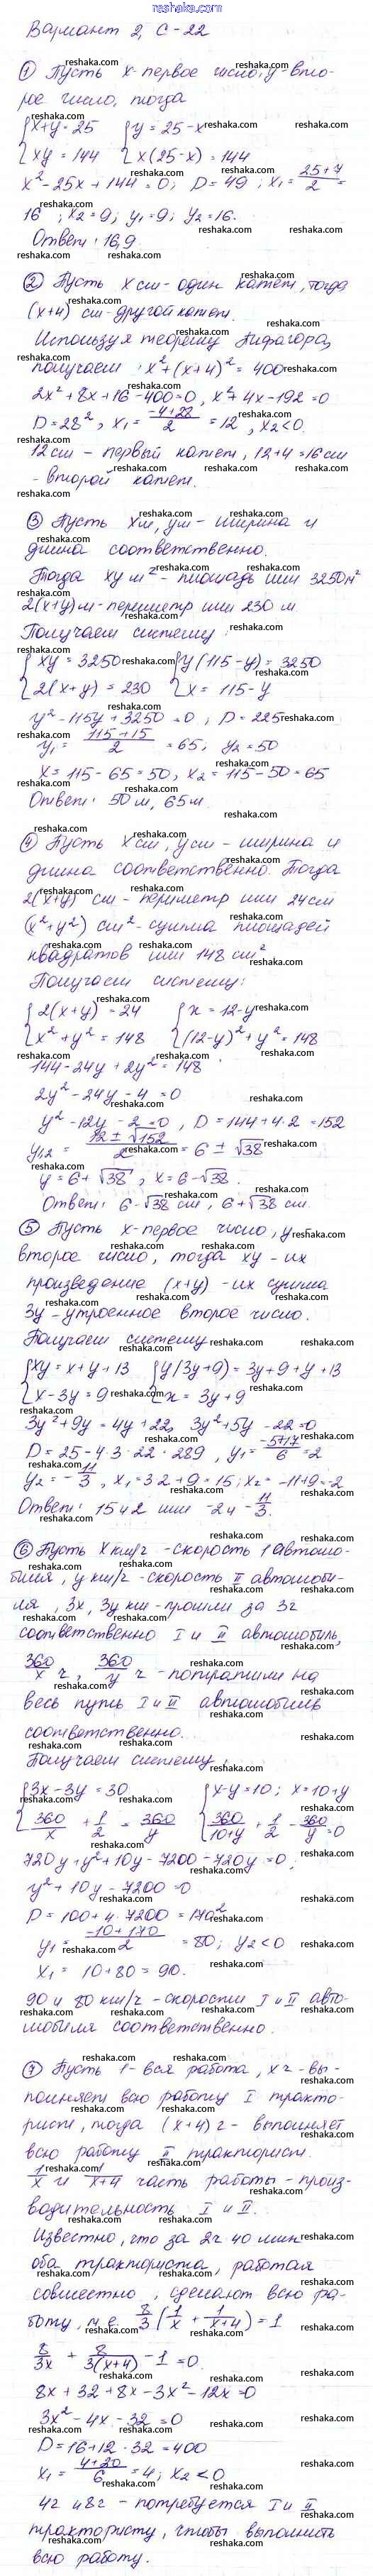 www.reshaka.com
Вариант 2, С-22
① Пусть x-первое число, y-вто-
рое число, тогда
{x+y=25 {y=25-x
{xy=144 {x(25-x)=144
x²-25x+144=0; D=49; x₁=(25+7)/2=
16; x₂=9; y₁=9; y₂=16.
Ответ: 16,9.
② Пусть x см-один катет, тогда
(x+4) см-другой катет.
Используя теорему Пифагора,
получаем: x²+(x+4)²=400
2x²+8x+16-400=0, x²+4x-192=0
D=28², x₁=(-4+28)/2=12, x₂<0.
12 см - первый катет, 12+4=16 см
- второй катет.
③ Пусть x м, y м - ширина и
длина соответственно.
Тогда xy м²-площадь или 3250 м²
2(x+y) м-периметр или 230 м
Получаем систему:
{xy=3250 {y(115-y)=3250
{2(x+y)=230 {x=115-y
y²-115y+3250=0; D=225
y₁=(115+15)/2=65; y₂=50
x=115-65=50, x₂=115-50=65
Ответ: 50 м, 65 м.
④ Пусть x см, y см - ширина и
длина соответственно. Тогда
2(x+y) см - периметр или 24 см
(x²+y²) см²-сумма площадей
квадратов или 148 см²
Получаем систему:
{2(x+y)=24 {x=12-y
{x²+y²=148 {(12-y)²+y²=148
144-24y+2y²=148
2y²-24y-4=0
y²-12y-2=0, D=144+4·2=152
y₁,₂=(12±√152)/2=6±√38
y=6+√38, x=6-√38.
Ответ: 6-√38 см, 6+√38 см.
⑤ Пусть x-первое число, y-
второе число, тогда xy-их
произведение (x+y)-их сумма
3y-утроенное второе число.
Получаем систему
{xy=x+y+13 {y(3y+9)=3y+9+y+13
{x-3y=9 {x=3y+9
3y²+9y=4y+22, 3y²+5y-22=0
D=25-4·3·22=289, y₁=(-5+17)/6=2
y₂=-11/3, x₁=3·2+9=15; x₂=-11+9=-2
Ответ: 15 и 2 или -2 и -11/3.
⑥ Пусть x км/ч -скорость 1 автомо-
биля, y км/ч -скорость II автомоби-
ля, 3x, 3y км-прошли за 3ч
соответственно I и II автомобиль,
360/x ч, 360/y ч -потратили на
весь путь I и II автомобиль
соответственно.
Получаем систему:
{3x-3y=30 {x-y=10; x=10+y
{360/x+1/2=360/y {360/(10+y)+1/2-360/y=0
720y+y²+10y-7200-720y=0;
y²+10y-7200=0
D=100+4·7200=170²
y₁=(-10+170)/2=80; y₂<0
x₁=10+80=90.
90 и 80 км/ч -скорости I и II авто-
мобиля соответственно.
⑦ Пусть 1-вся работа, x ч-вы-
полняет всю работу I тракто-
рист, тогда (x+4) ч - выполняет
всю работу II тракторист.
1/x и 1/(x+4) часть работы-произ-
водительность I и II.
Известно, что за 2ч 40 мин
оба тракториста, работая
совместно, сделают всю ра-
боту, т.е. 8/3(1/x+1/(x+4))=1
8/3x+8/3(x+4)-1=0
8x+32+8x-3x²-12x=0
3x²-4x-32=0
D=16+12·32=400
x₁=(4+20)/6=4; x₂<0
4ч и 8ч - потребуется I и II
трактористу, чтобы выполнить
всю работу.